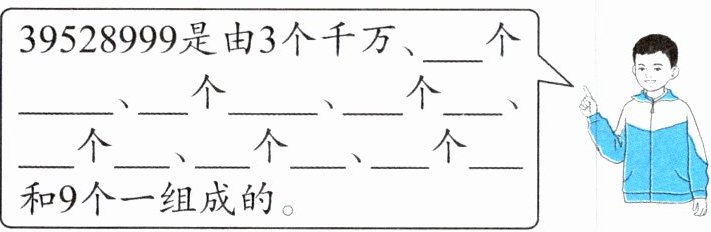 39528999是由3个千万、___个
_____、___个_____、___个___、
___个___、___个___、___个___
和9个一组成的。